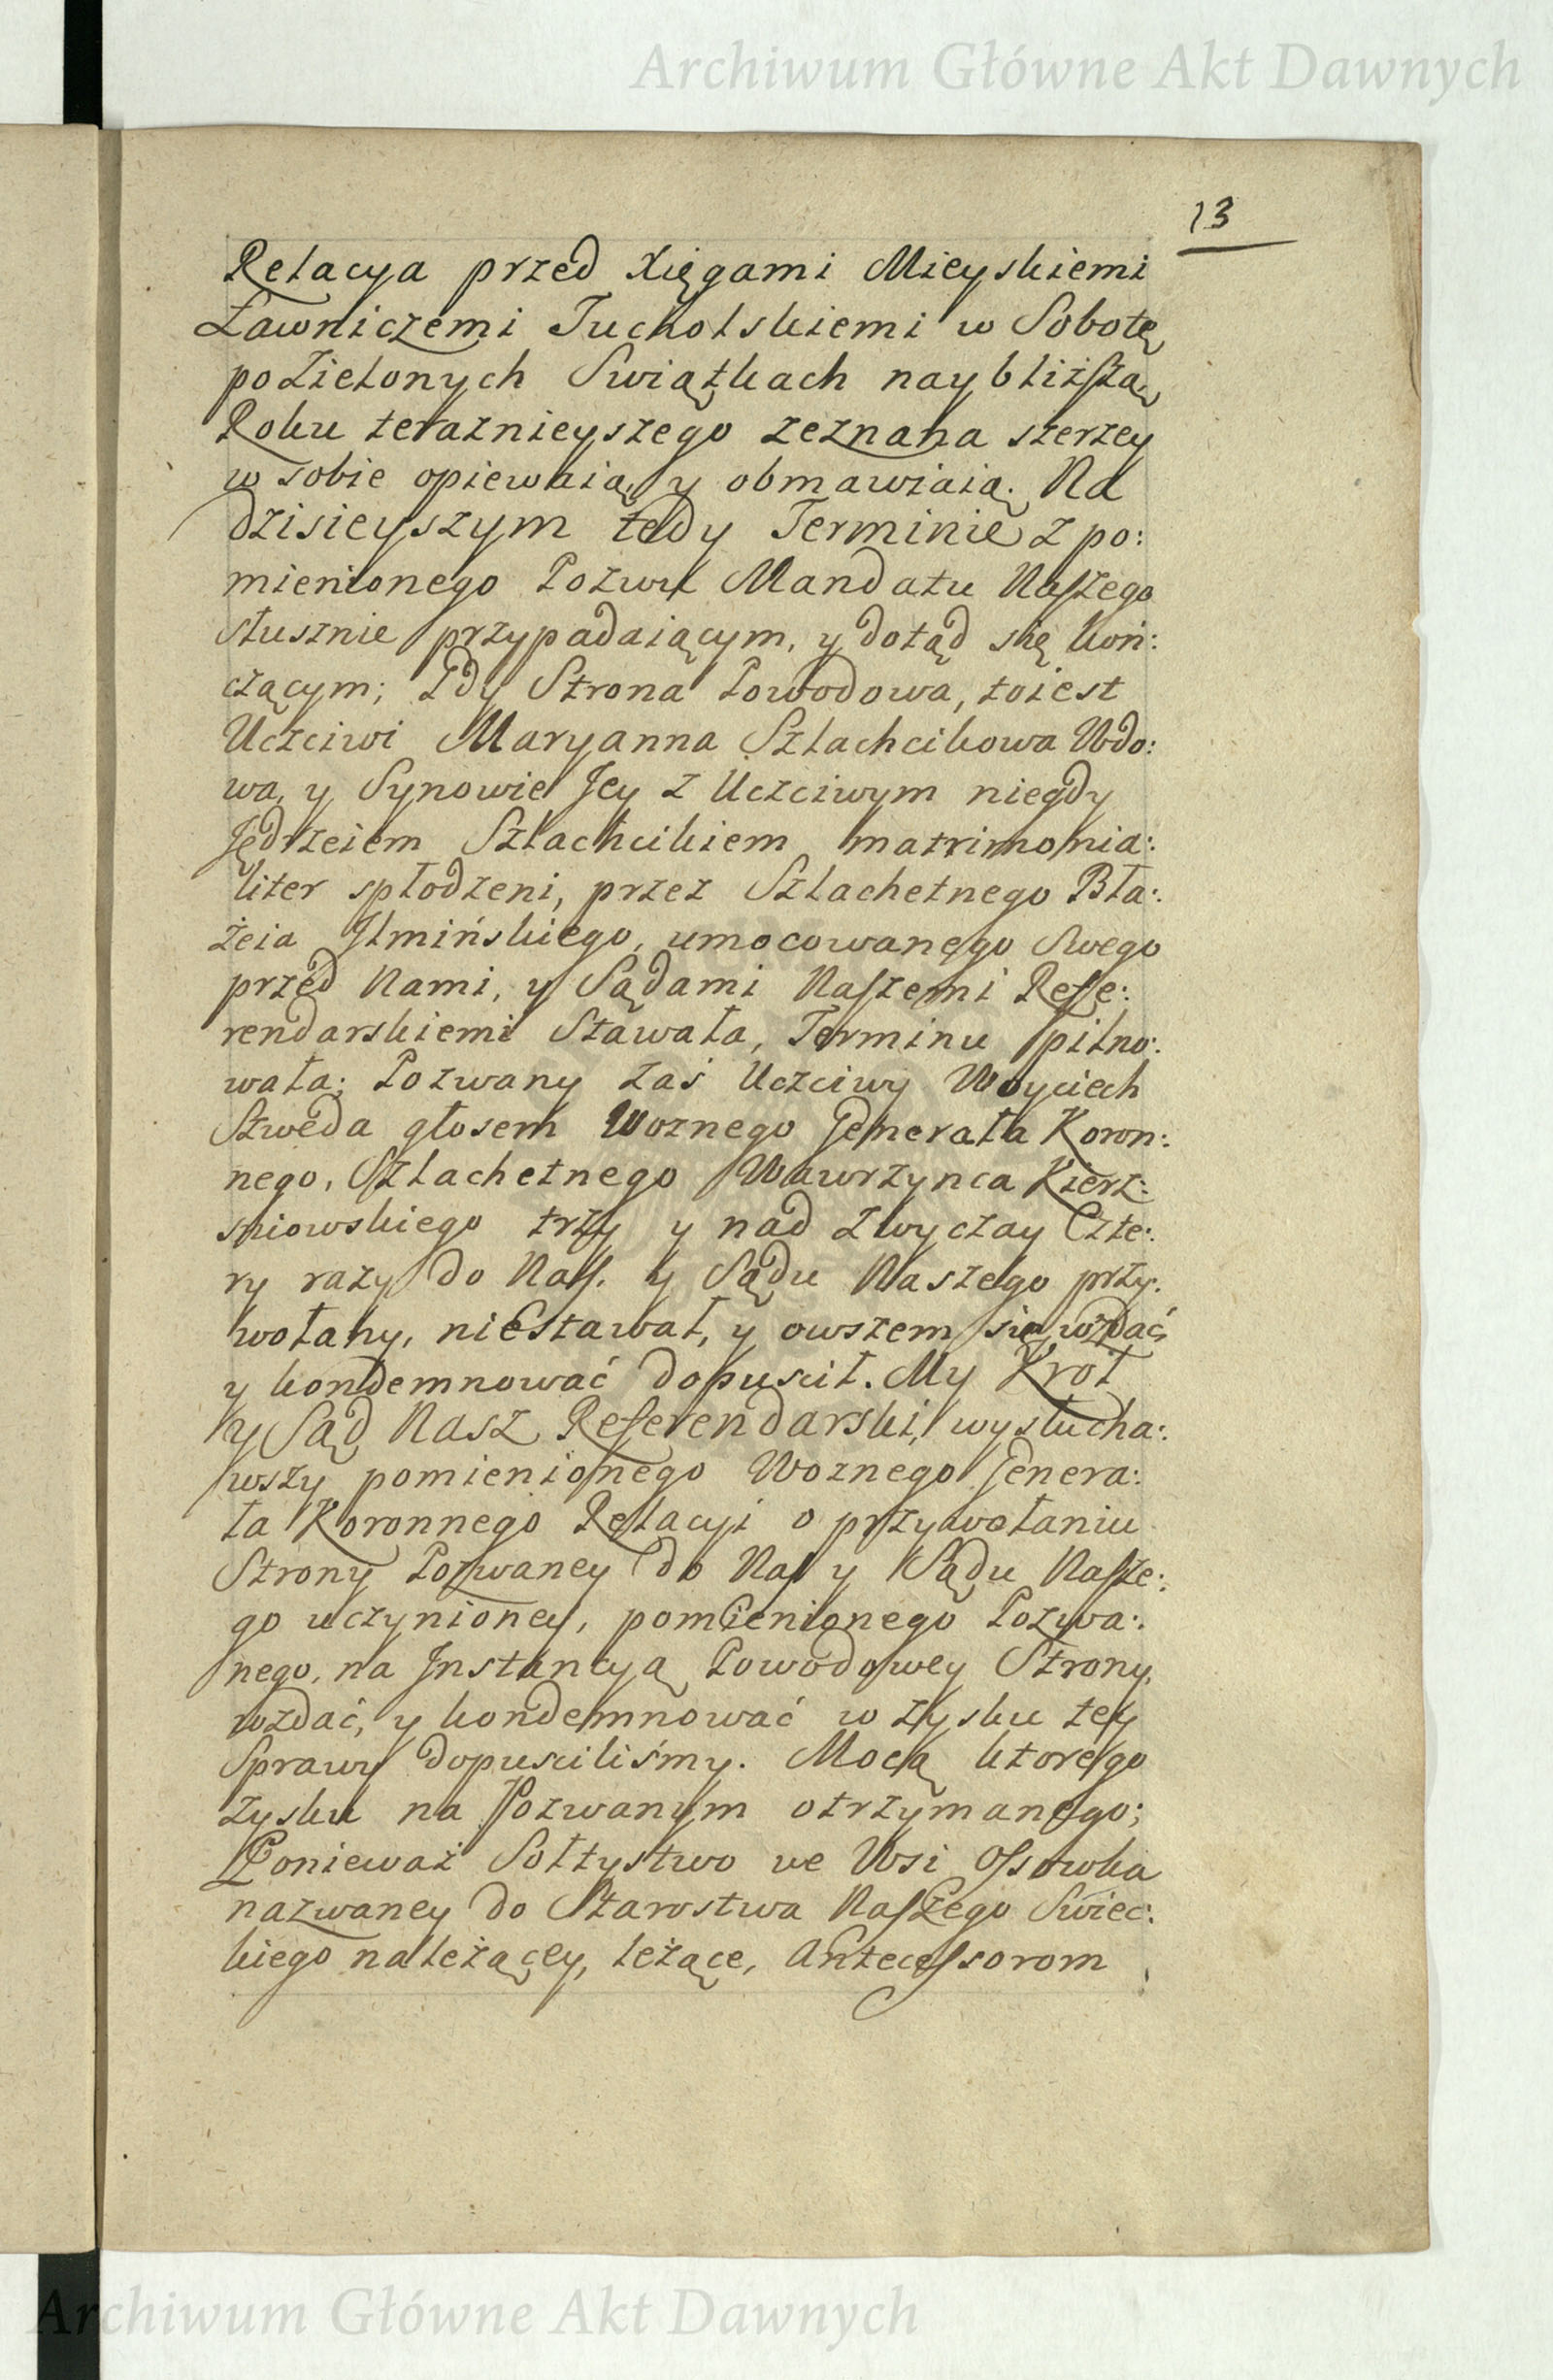 Archiwum Główne Akt Dawnych
13
Relacya przed Xięgami Mieyskiemi
Ławniczemi Tucholskiemi w Sobotę
poZielonych Swiątkach naybliższą,
Roku teraznieyszego zeznana szerzey
w sobie opiewaią, y obmawiaią. Na
dzisieyszym tedy Terminie z po:
mienionego Pozwu Mandatu Naszego
słusznie przypadaiącym, y dotąd się koń:
czącym; Gdy Strona Powodowa, toiest
Uczciwi Maryanna Szlachcikowa Wdo:
wa, y Synowie Jey z Uczciwym niegdy
Jędrzeiem Szlachcikiem matrimonia:
liter spłodzeni, przez Szlachetnego Bła:
żeia Ilmińskiego, umocowanego Swego
przed Nami, y Sądami Naszemi Refe:
rendarskiemi Stawała, Terminu pilno:
wała; Pozwany zaś Uczciwy Woyciech
Szweda głosem Woznego Generała Koron:
nego, Szlachetnego Wawrzynca Kierz:
sniowskiego trzy y nad zwyczay Czte:
ry razy do Nas. y Sądu Naszego przy:
wołany, nieStawał, y owszem się wzdać,
y kondemnować dopuscił. My Krol
y Sąd Nasz Referendarski, wysłucha:
wszy pomienionego Woznego Genera:
ła Koronnego Relacyi o przywołaniu
Strony Pozwaney do Nas y Sądu Nasze:
go uczynioney, pomienionego Pozwa:
nego, na Instancyą Powodowey Strony,
wzdać, y kondemnować w zysku tey
Sprawy dopusciliśmy. Mocą ktorego
zysku na Pozwanym otrzymanego;
Ponieważ Sołtystwo we Wsi Ossowka
nazwaney do Starostwa Naszego Swiec:
kiego należącey, leżące, Antecessorom
Archiwum Główne Akt Dawnych